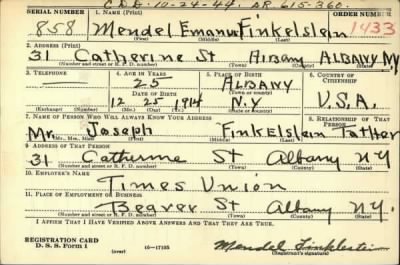 C.D.D. 10-24-44. AR 615-360.
SERIAL NUMBER 1. NAME (Print) ORDER NUMBER
858 Mendel Emanuel Finkelstein 1433
(First) (Middle) (Last)
2. ADDRESS (Print)
31 Catherine St Albany ALBANY NY
(Number and street or R. F. D. number) (Town) (County) (State)
3. TELEPHONE 4. AGE IN YEARS 5. PLACE OF BIRTH 6. COUNTRY OF CITIZENSHIP
25 ALBANY
DATE OF BIRTH (Town or county)
12 25 1914 N.Y U.S.A.
(Exchange) (Number) (Mo.) (Day) (Yr.) (State or country)
7. NAME OF PERSON WHO WILL ALWAYS KNOW YOUR ADDRESS 8. RELATIONSHIP OF THAT PERSON
Mr. Joseph Finkelstein Father
(Mr., Mrs., Miss) (First) (Middle) (Last)
9. ADDRESS OF THAT PERSON
31 Catherine St Albany NY
(Number and street or R. F. D. number) (Town) (County) (State)
10. EMPLOYER'S NAME
Times Union
11. PLACE OF EMPLOYMENT OR BUSINESS
Beaver St Albany NY.
(Number and street or R. F. D. number) (Town) (County) (State)
I AFFIRM THAT I HAVE VERIFIED ABOVE ANSWERS AND THAT THEY ARE TRUE.
REGISTRATION CARD
D. S. S. Form 1 (over) 16-17105 Mendel Finkelstein
(Registrant's signature)